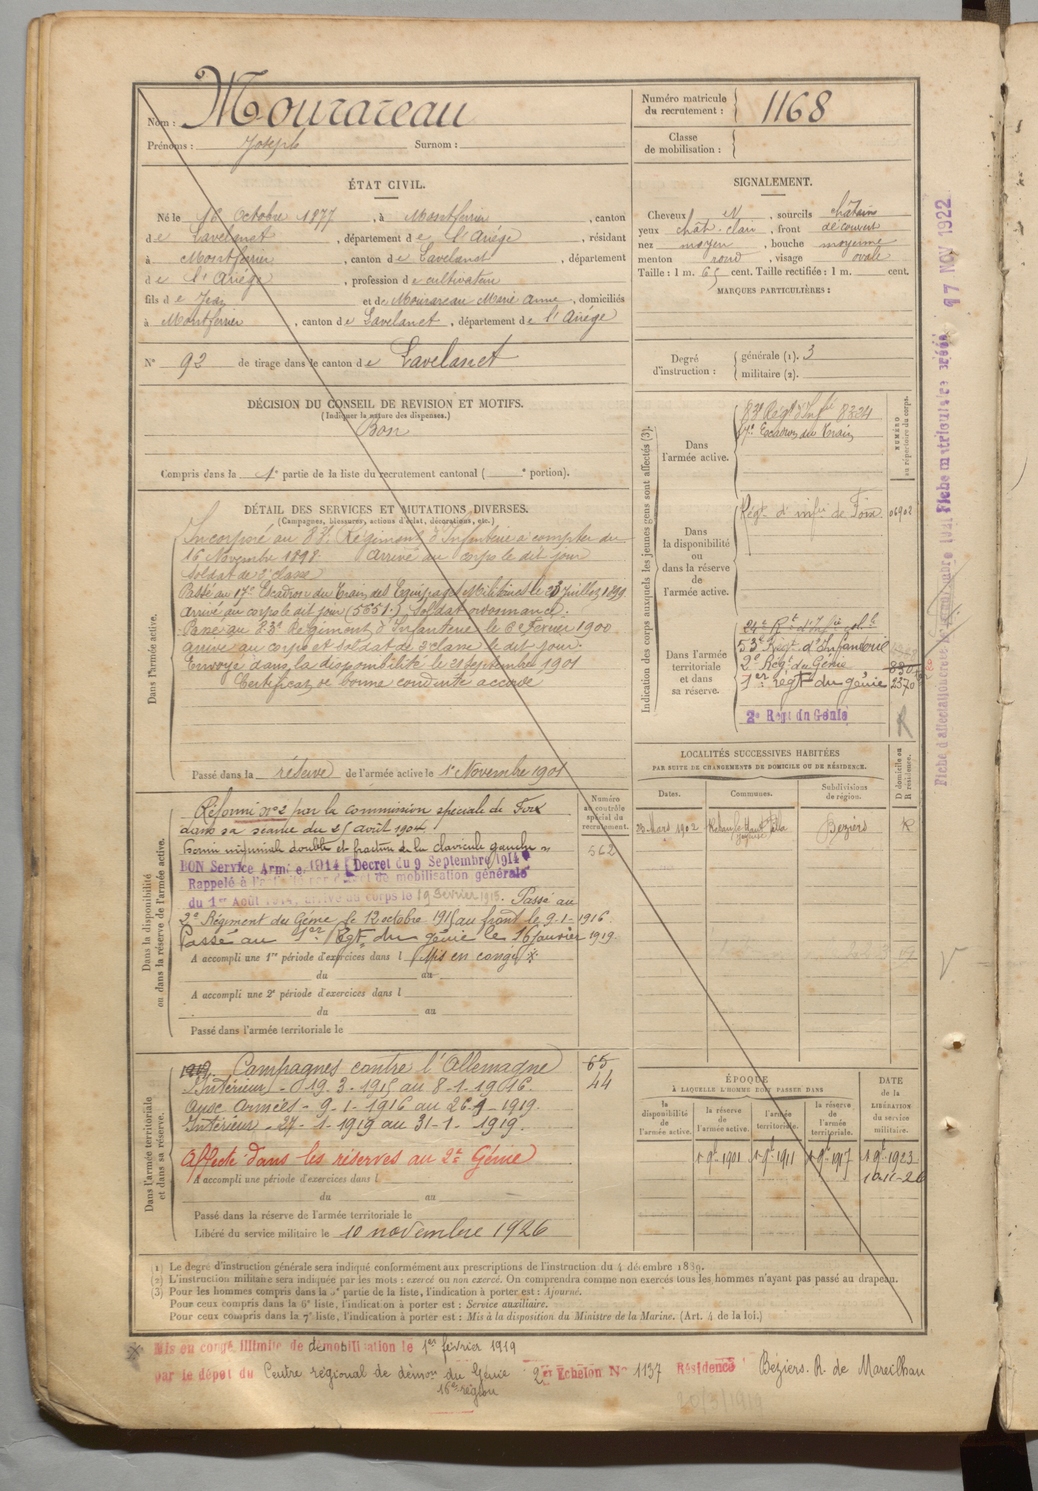 Nom : Mourareau
Prénoms : Joseph Surnom :
Numéro matricule du recrutement : 1168
Classe de mobilisation :
ÉTAT CIVIL.
Né le 18 Octobre 1877, à Montferrier, canton
de Lavelanet, département de l'Ariége, résidant
à Montferrier, canton de Lavelanet, département
de l'Ariége, profession de cultivateur
fils de Jean et de Mourareau Marie Anne, domiciliés
à Montferrier, canton de Lavelanet, département de l'Ariége
N° 92 de tirage dans le canton de Lavelanet
SIGNALEMENT.
Cheveux N, sourcils châtain
yeux chât. clair, front découvert
nez moyen, bouche moyenne
menton rond, visage ovale
Taille : 1 m. 65 cent. Taille rectifiée : 1 m. cent.
MARQUES PARTICULIÈRES :
Degré d'instruction : générale (1). 3
militaire (2).
DÉCISION DU CONSEIL DE REVISION ET MOTIFS.
(Indiquer la nature des dispenses.)
Bon
Compris dans la 1e partie de la liste du recrutement cantonal ( e portion).
DÉTAIL DES SERVICES ET MUTATIONS DIVERSES.
(Campagnes, blessures, actions d'éclat, décorations, etc.)
Dans l'armée active.
Incorporé au 83e Régiment d'Infanterie à compter du
16 Novembre 1898. Arrivé au corps le dit jour
soldat de 2e classe
Passé au 17e Escadron du Train des Equipages Militaires le 23 Juillet 1899
Arrivé au corps le dit jour (5351.) soldat ordonnance.
Passé au 83e Régiment d'Infanterie le 8 Février 1900
arrivé au corps et soldat de 2e classe le dit jour.
Envoyé dans la disponibilité le 21 septembre 1901
Certificat de bonne conduite accordé
Passé dans la réserve de l'armée active le 1er Novembre 1901
Indication des corps auxquels les jeunes gens sont affectés (3).
NUMÉRO au répertoire du corps.
Dans l'armée active.
83e Régt d'Infie 8324
17e Escadron du Train
Dans la disponibilité ou dans la réserve de l'armée active.
Régt d'infie de Foix 06902
Dans l'armée territoriale et dans sa réserve.
53e Régt d'Infanterie
2e Régt du Génie
1er régt du génie 2370
2e Régt du Génie
Dans la disponibilité ou dans la réserve de l'armée active.
Numéro au contrôle spécial du recrutement.
Réformé n° 2 par la commission spéciale de Foix
dans sa séance du 25 août 1904.
hernie inguinale double et fraction de la clavicule gauche "
562
BON Service Armé 1914 [Decret du 9 Septembre 1914]
Rappelé à l'activité par décret de mobilisation générale
du 1er Août 1914, arrivé au corps le 19 février 1915. Passé au
2e Régiment du Génie le 12 octobre 1915 au front le 9-1-1916
Passé au 1er Régt du génie le 16 janvier 1919.
A accompli une 1re période d'exercices dans l Mis en congé *
du au
A accompli une 2e période d'exercices dans l
du au
Passé dans l'armée territoriale le
LOCALITÉS SUCCESSIVES HABITÉES
PAR SUITE DE CHANGEMENTS DE DOMICILE OU DE RÉSIDENCE.
Dates. Communes. Subdivisions de région. D domicile ou R résidence.
Mars 1902 Béziers R
Dans l'armée territoriale et dans sa réserve.
Campagnes contre l'Allemagne
65
44
Intérieur - 19.3-1915 au 8-1-1916.
aux Armées - 9-1-1916 au 26-1-1919.
Intérieur - 27-1-1919 au 31-1-1919.
Affecté dans les réserves au 2e Génie
A accompli une période d'exercices dans l
du au
Passé dans la réserve de l'armée territoriale le
Libéré du service militaire le 10 novembre 1926
ÉPOQUE
À LAQUELLE L'HOMME DOIT PASSER DANS
la disponibilité de l'armée active.
la réserve de l'armée active.
l'armée territoriale.
la réserve de l'armée territoriale.
DATE de la LIBÉRATION du service militaire.
1 9bre 1901 1 9bre 1911 1 9bre 1917 1 9bre 1923
10-11-26
(1) Le degré d'instruction générale sera indiqué conformément aux prescriptions de l'instruction du 4 décembre 1889.
(2) L'instruction militaire sera indiquée par les mots : exercé ou non exercé. On comprendra comme non exercés tous les hommes n'ayant pas passé au drapeau.
(3) Pour les hommes compris dans la 5e partie de la liste, l'indication à porter est : Ajourné.
Pour ceux compris dans la 6e liste, l'indication à porter est : Service auxiliaire.
Pour ceux compris dans la 7e liste, l'indication à porter est : Mis à la disposition du Ministre de la Marine. (Art. 4 de la loi.)
* Mis en congé illimité de démobilisation le 1er février 1919
par le dépôt du Centre régional de démon du Génie 2e Echelon N° 1137 Résidence Béziers. R. de Mareilhan
16e région
20/3/1919
17 NOV 1922